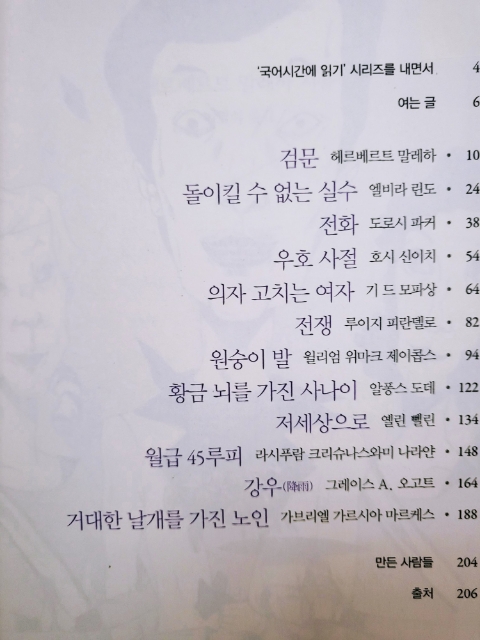 '국어시간에 읽기' 시리즈를 내면서 4
여는 글 6
검문 헤르베르트 말레하 • 10
돌이킬 수 없는 실수 엘비라 린도 • 24
전화 도로시 파커 • 38
우호 사절 호시 신이치 • 54
의자 고치는 여자 기 드 모파상 • 64
전쟁 루이지 피란델로 • 82
원숭이 발 윌리엄 위마크 제이콥스 • 94
황금 뇌를 가진 사나이 알퐁스 도데 • 122
저세상으로 옐린 뻴린 • 134
월급 45루피 라시푸람 크리슈나스와미 나라얀 • 148
강우(降雨) 그레이스 A. 오고트 • 164
거대한 날개를 가진 노인 가브리엘 가르시아 마르케스 • 188
만든 사람들 204
출처 206